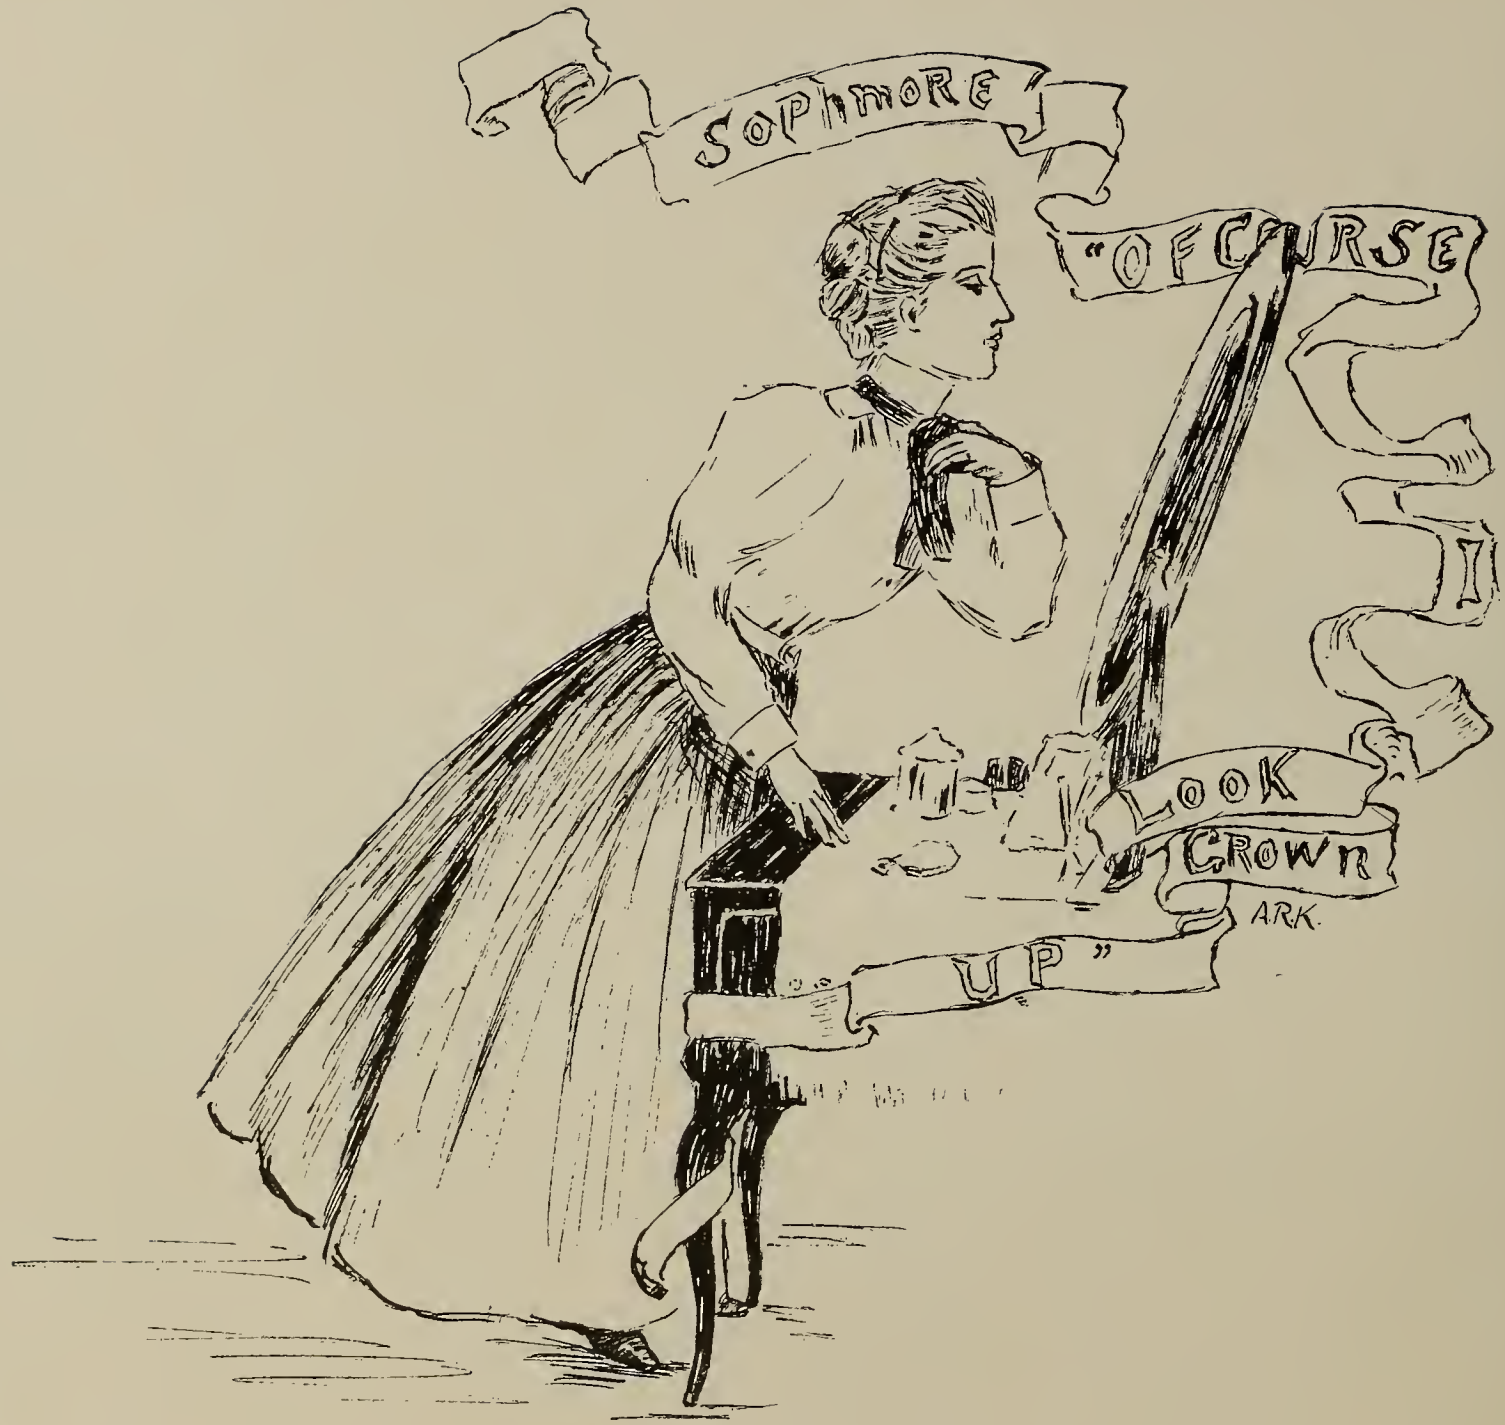 SOPhmoRE
"OF COURSE
I
LOOK
CROWn
UP"
A.R.K.